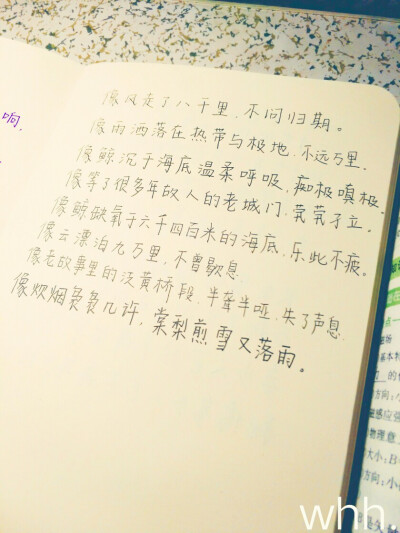 像风走了八千里，不问归期。
像雨洒落在热带与极地，不远万里。
像鲸沉于海底温柔呼吸，痴极嗔极。
像等了很多年故人的老城门，茕茕孑立。
像鲸缺氧于六千四百米的海底，乐此不疲。
像云漂泊九万里，不曾歇息
像老故事里的泛黄桥段，半聋半哑，失了声息
像炊烟袅袅几许，棠梨煎雪又落雨。
响，
基本特
方向：
磁感应强
物理意
大小：B
方向：小
whh.